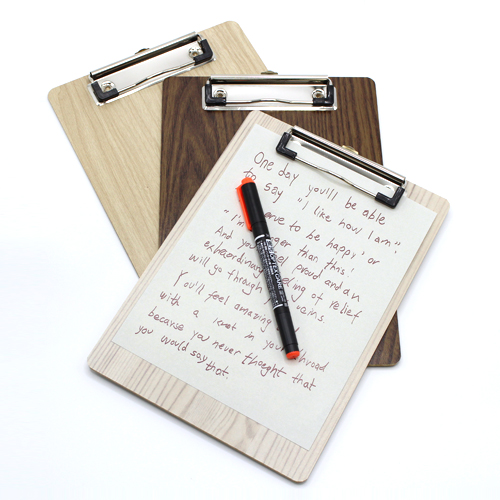 One day you'll be able
to say "I like how I am".
"I to be happy" or
"I'm than this!
And you proud and an
extraordinary of relief
will go through
You'll feel amazing
with a in your
because you never thoeght that
you would say
that.